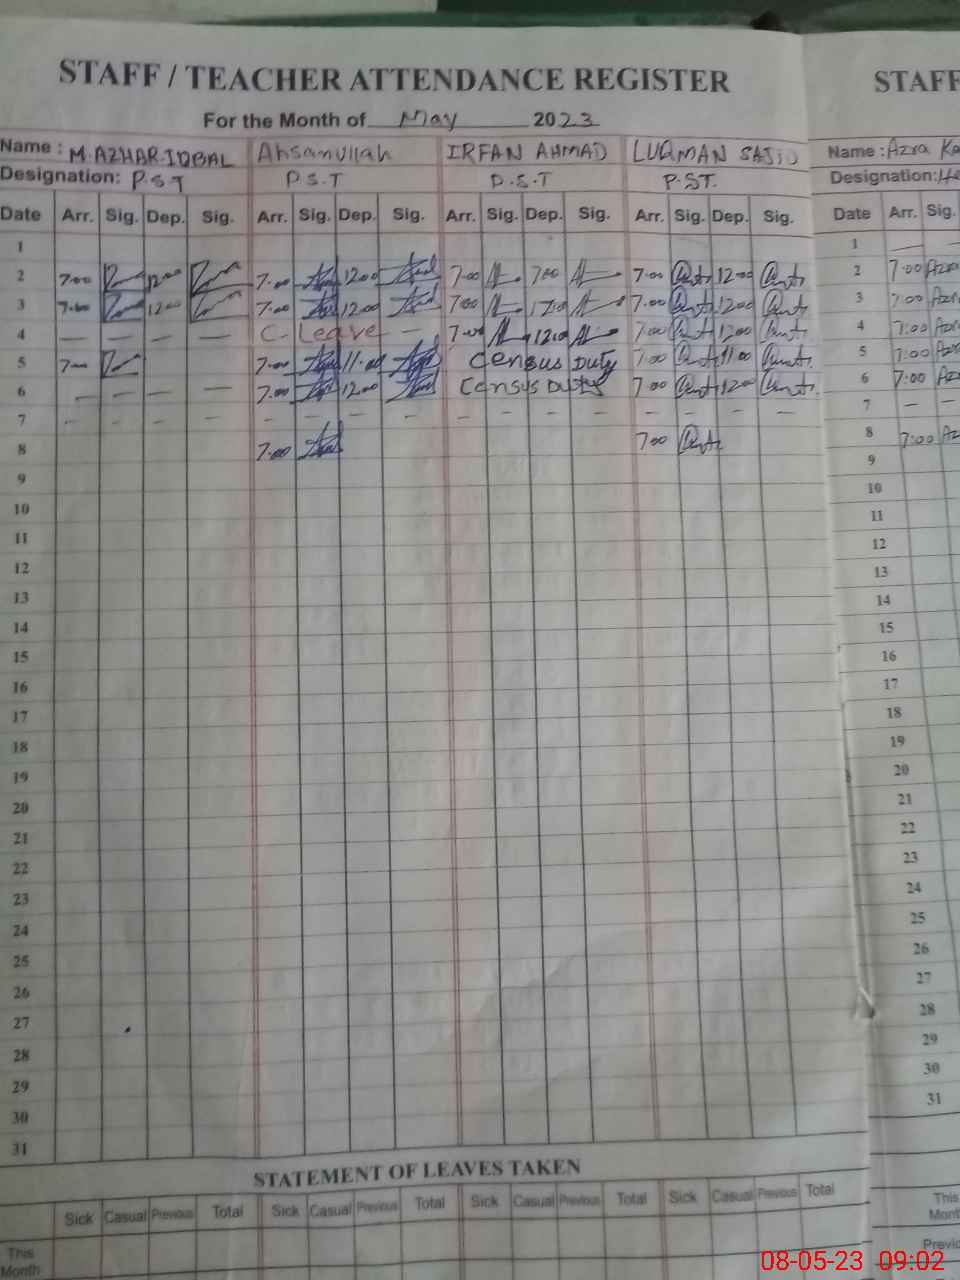 STAFF / TEACHER ATTENDANCE REGISTER
For the Month of May 2023
Name : M. AZHAR IQBAL Ahsanullah IRFAN AHMAD LUQMAN SAJID
Designation: P.S.T P.S.T P.S.T P.ST.
Date Arr. Sig. Dep. Sig. Arr. Sig. Dep. Sig. Arr. Sig. Dep. Sig. Arr. Sig. Dep. Sig.
1
2 7.00 1200 7.00 1200 7.00 7.00 7.00 1200
3 7.00 1200 7.00 1200 7.00 1200 7.00 1200
4 — — — — C- Leave — 7.00 1200 7.00 1200
5 7.00 7.00 11.00 Census Duty 7.00 1100
6 — — — — 7.00 1200 Census Duty 7.00 1200
7 — — — — — — — — — — — — — — — —
8 7.00 700
9
10
11
12
13
14
15
16
17
18
19
20
21
22
23
24
25
26
27
28
29
30
31
STATEMENT OF LEAVES TAKEN
Sick Casual Previous Total Sick Casual Previous Total Sick Casual Previous Total Sick Casual Previous Total
This
Month
STAFF
Name : Azra
Designation:
Date Arr. Sig.
1 — —
2 7:00 Azra
3 7:00 Azra
4 7:00 Azra
5 7:00 Azra
6 7:00 Azra
7 — —
8 7:00 Az
9
10
11
12
13
14
15
16
17
18
19
20
21
22
23
24
25
26
27
28
29
30
31
This
Mont
Previo
08-05-23 09:02